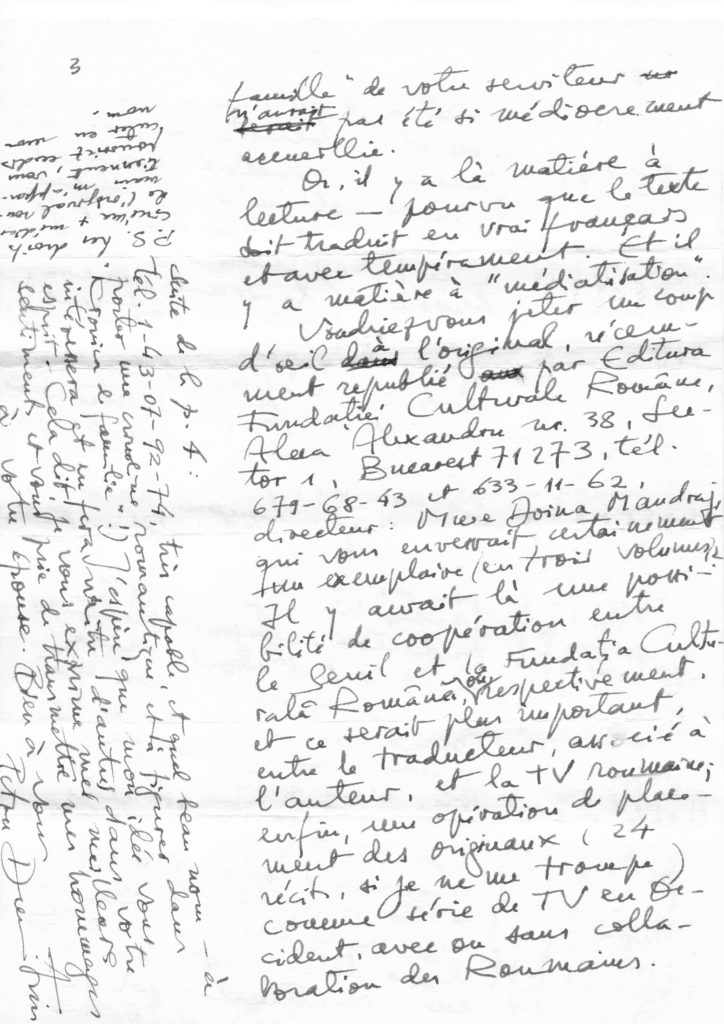 3
famille" de votre serviteur
n'aurait pas été si médiocrement
accueillie.
Or, il y a là matière à
lecture — pourvu que le texte
soit traduit en vrai français
et avec tempérament. Et il
y a matière à "médiatisation".
Voudriez-vous jeter un coup
d'oeil à l'original, récem-
ment republié par Editura
Fundației Culturale Române,
Aleea Alexandru nr. 38, Sec-
tor 1, Bucarest 71273, tél.
679-68-43 et 633-11-62,
directeur: Mme Doina Mandraj,
qui vous enverrait certainement
un exemplaire (en trois volumes)?
Il y aurait là une possi-
bilité de coopération entre
le Seuil et la Fundația Cultu-
rală Română, ou, respectivement,
et ce serait plus important,
entre le traducteur, associé à
l'auteur, et la TV roumaine;
enfin, une opération de place-
ment des originaux (24
récits, si je ne me trompe)
comme série de TV en Oc-
cident, avec ou sans colla-
boration des Roumains.
Suite de la p. 4:
tél. 1-43-07-92-74, très capable, et quel beau nom — à
porter une crinoline romantique et à figurer dans
Cronica de familie...!) J'espère que mon idée vous
intéressera et en fera naître d'autres dans votre
esprit. Cela dit, je vous exprime mes meilleurs
sentiments et vous prie de transmettre mes hommages
à votre épouse. Bien à vous
Petru Dumitriu
P.S. Les droits
de l'original rou-
main m'appar-
tiennent, vous
pouvez
nom.